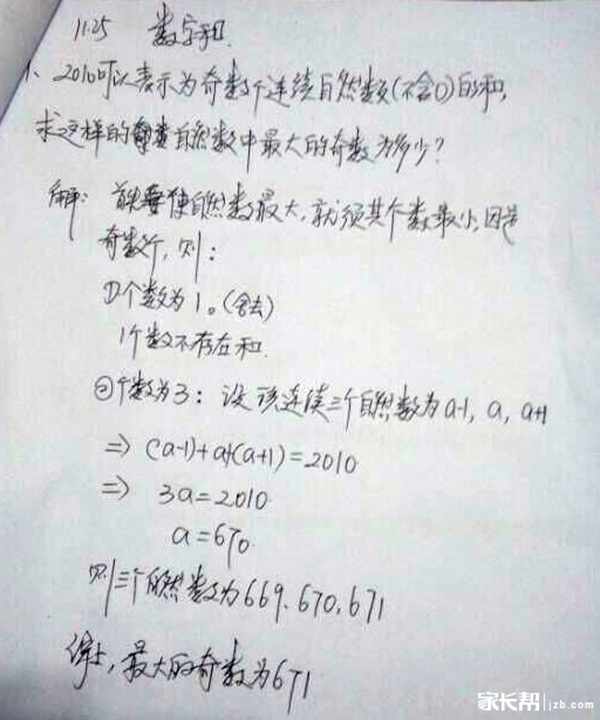 11.25 数字和.
1、2010可以表示为奇数个连续自然数(不含0)的和,
求这样的自然数中最大的奇数为多少?
解: 要使自然数最大,就须其个数最小,因是
奇数个,则:
①个数为1。(舍去)
1个数不存在和.
②个数为3: 设该连续三个自然数为a-1, a, a+1
⇒ (a-1)+a+(a+1)=2010
⇒ 3a=2010
a=670.
则三个自然数为669、670、671
综上,最大的奇数为671
家长帮 jzb.com